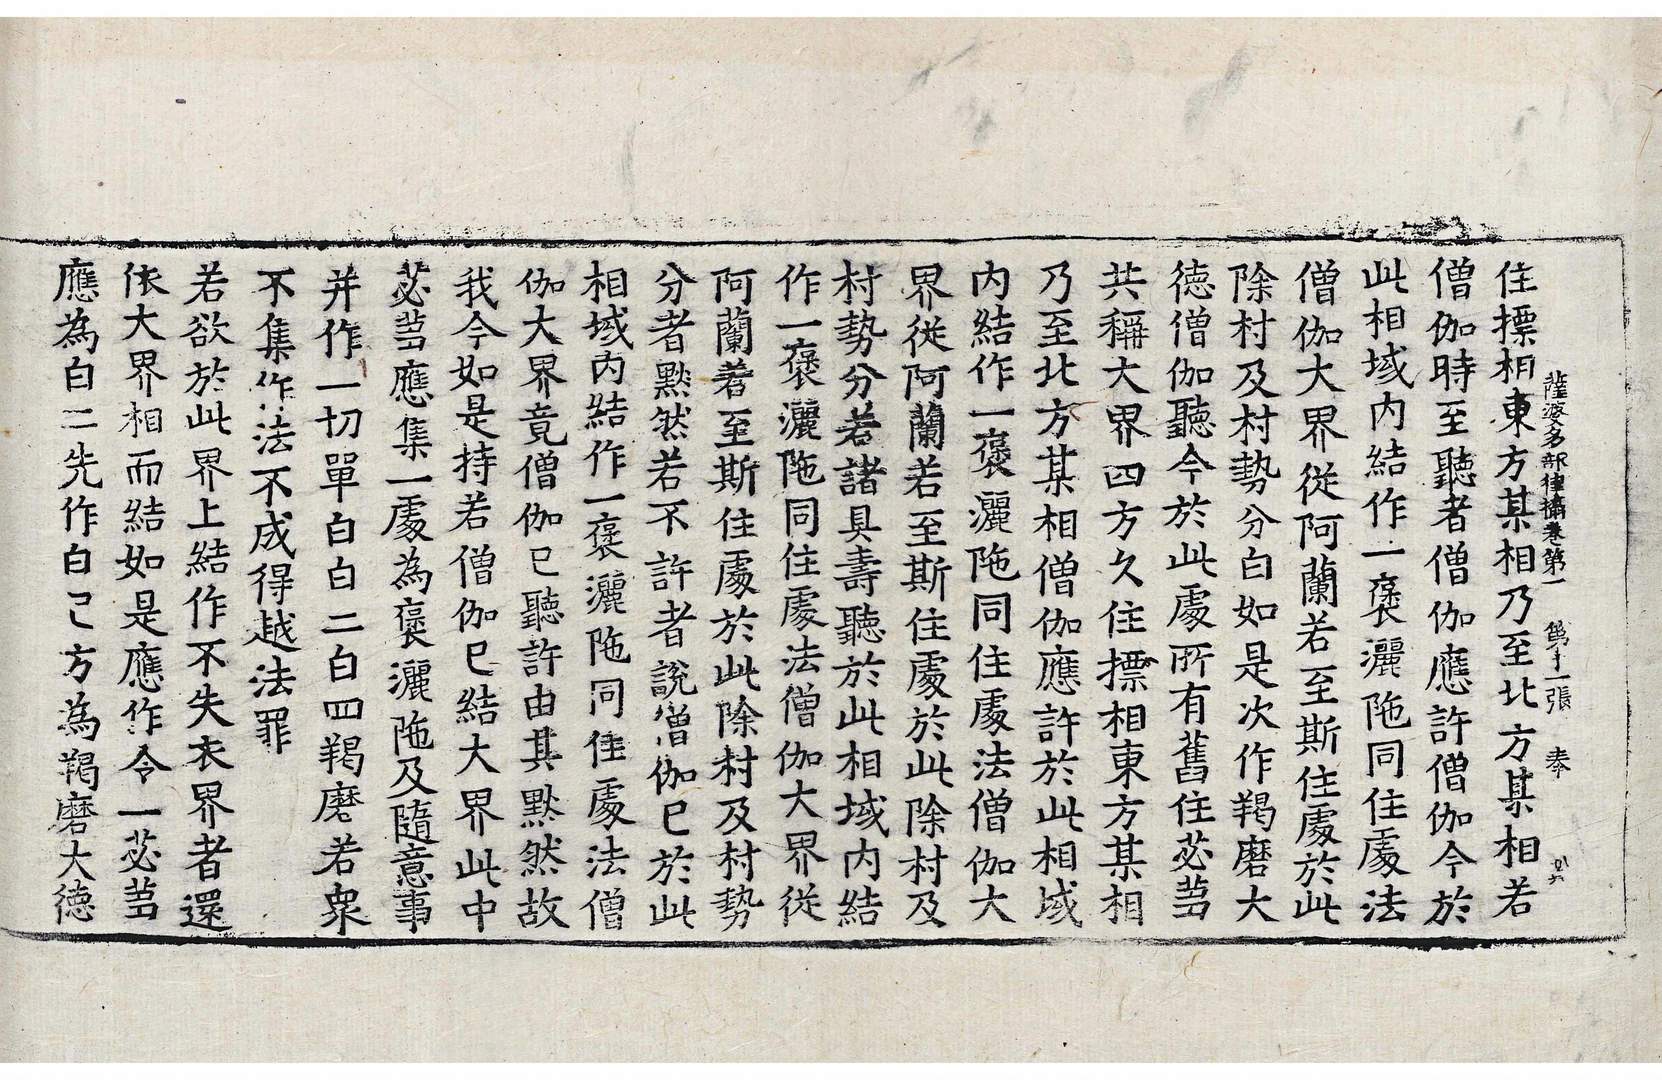 薩婆多部律攝卷第一 第十一張 奉
住摽相東方某相乃至北方某相若
僧伽時至聽者僧伽應許僧伽今於
此相域內結作一褒灑陁同住處法
僧伽大界從阿蘭若至斯住處於此
除村及村勢分白如是次作羯磨大
德僧伽聽今於此處所有舊住苾芻
共稱大界四方久住摽相東方某相
乃至北方某相僧伽應許於此相域
內結作一褒灑陁同住處法僧伽大
界從阿蘭若至斯住處於此除村及
村勢分若諸具壽聽於此相域內結
作一褒灑陁同住處法僧伽大界從
阿蘭若至斯住處於此除村及村勢
分者默然若不許者說僧伽已於此
相域內結作一褒灑陁同住處法僧
伽大界竟僧伽已聽許由其默然故
我今如是持若僧伽已結大界此中
苾芻應集一處為褒灑陁及隨意事
并作一切單白白二白四羯磨若衆
不集作法不成得越法罪
若欲於此界上結作不失衣界者還
依大界相而結如是應作令一苾芻
應為白二先作白已方為羯磨大德